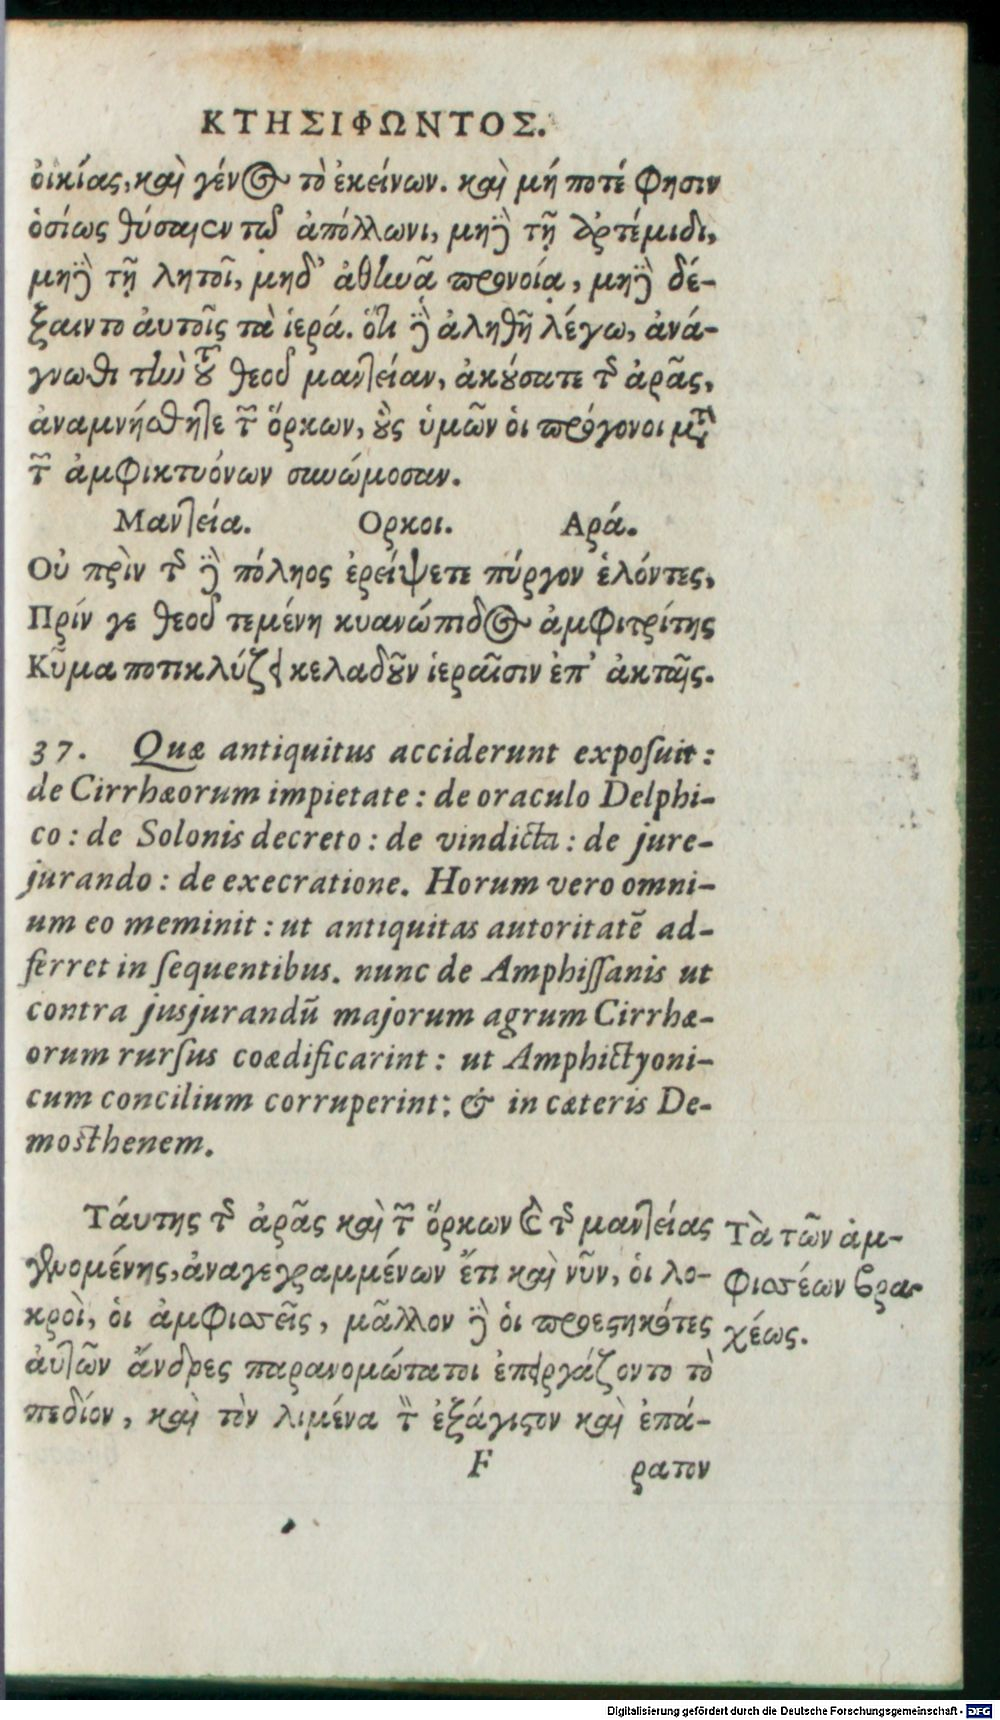 ΚΤΗΣΙΦΩΝΤΟΣ.
οἰκίας, καὶ γένος τὸ ἐκείνων. καὶ μή ποτέ φησιν
ὁσίως θύσαιεν τῷ ἀπόλλωνι, μηδὲ τῇ ἀρτέμιδι,
μηδὲ τῇ λητοῖ, μηδ' ἀθηνᾶ προνοίᾳ, μηδὲ δέ-
ξαιντο αὐτοῖς τὰ ἱερά. ὅτι δὲ ἀληθῆ λέγω, ἀνά-
γνωθι τὴν τοῦ θεοῦ μαντείαν, ἀκούσατε τῆς ἀρᾶς,
ἀναμνήσθητε τῶν ὅρκων, οὓς ὑμῶν οἱ πρόγονοι μετὰ
τῶν ἀμφικτυόνων συνώμοσαν.
Μαντεία. Ορκοι. Αρά.
Οὐ πρὶν τῆς δὲ πόληος ἐρείψετε πύργον ἑλόντες,
Πρίν γε θεοῦ τεμένη κυανώπιδος ἀμφιτρίτης
Κῦμα ποτικλύζει κελαδοῦν ἱεραῖσιν ἐπ' ἀκταῖς.
37. Quæ antiquitus acciderunt exposuit:
de Cirrhæorum impietate: de oraculo Delphi-
co: de Solonis decreto: de vindicta: de jure-
jurando: de execratione. Horum vero omni-
um eo meminit: ut antiquitas autoritatē ad-
ferret in sequentibus. nunc de Amphissanis ut
contra jusjurandū majorum agrum Cirrhæ-
orum rursus coædificarint: ut Amphictyoni-
cum concilium corruperint: & in cæteris De-
mosthenem.
Ταύτης τῆς ἀρᾶς καὶ τῶν ὅρκων καὶ τῆς μαντείας
γενομένης, ἀναγεγραμμένων ἔτι καὶ νῦν, οἱ λο-
κροὶ, οἱ ἀμφισσεῖς, μᾶλλον δὲ οἱ προεστηκότες
αὐτῶν ἄνδρες παρανομώτατοι ἐπειργάζοντο τὸ
πεδίον, καὶ τὸν λιμένα τὸν ἐξάγιστον καὶ ἐπά-
F ρατον
Τὰ τῶν ἀμ-
φισσέων βρα-
χέως.
Digitalisierung gefördert durch die Deutsche Forschungsgemeinschaft - DFG